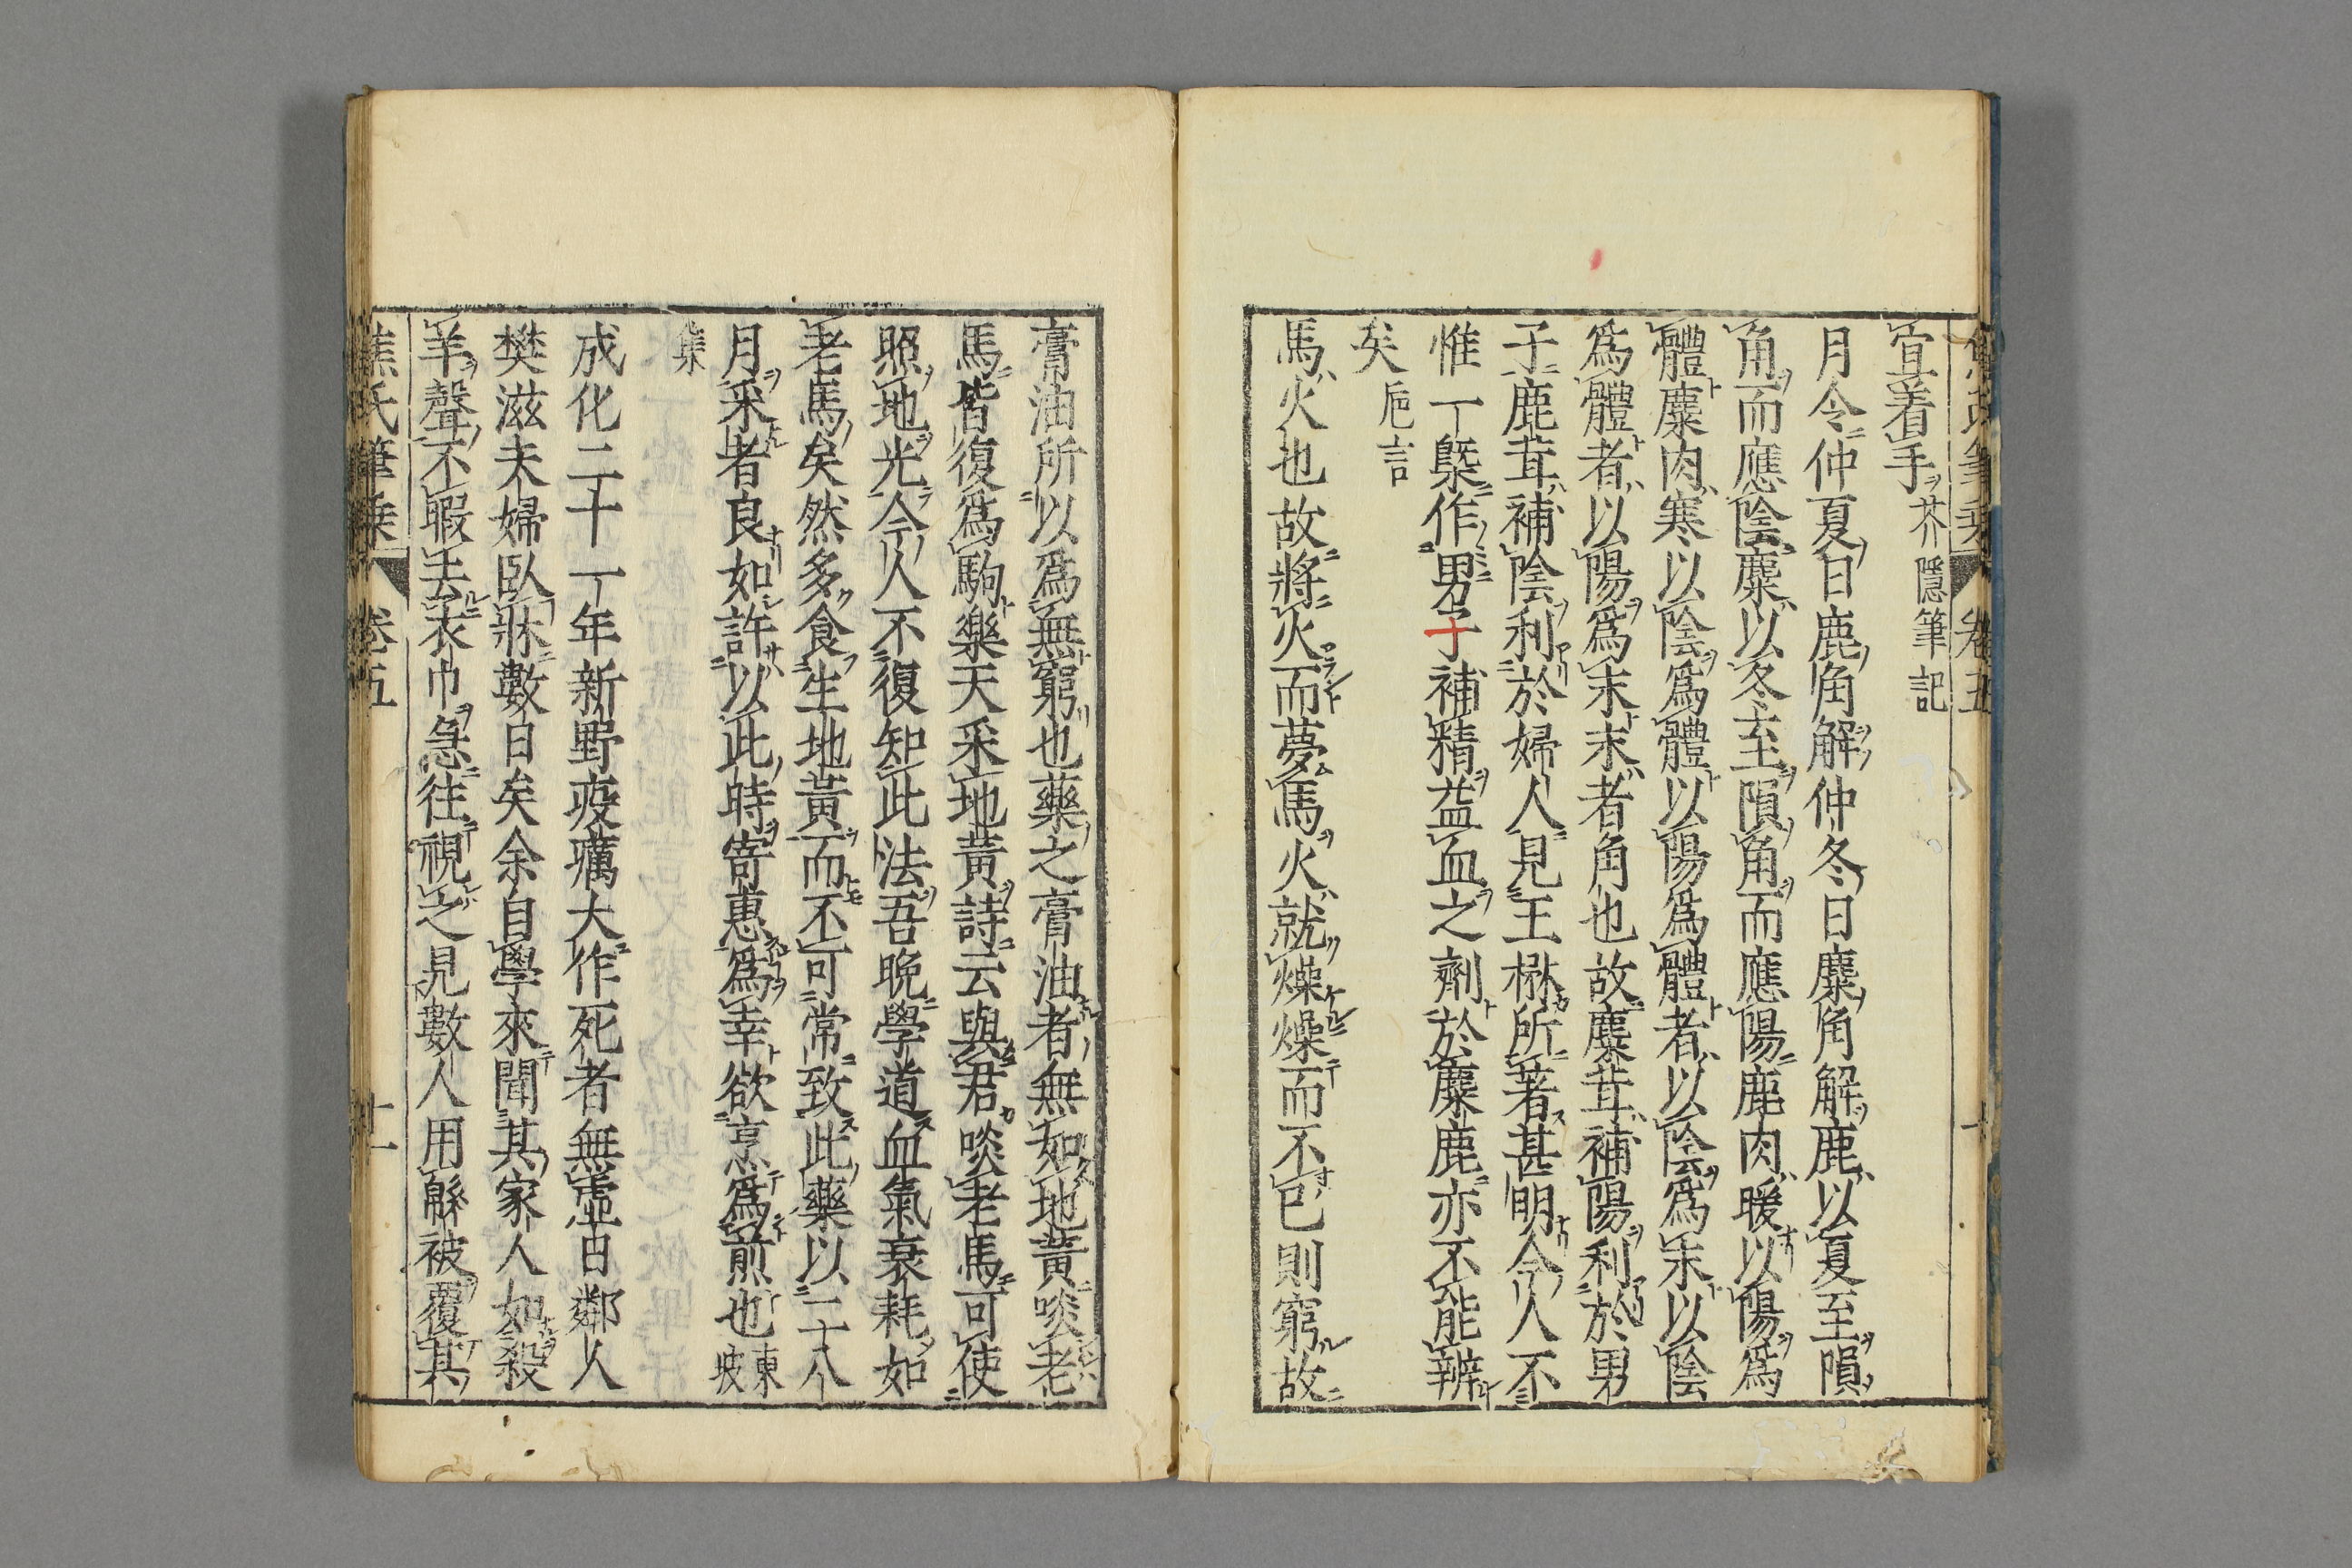 宜着手芥隱筆記
月令仲夏日鹿角解仲冬日麋角解鹿以夏至隕
角而應陰麋以冬至隕角而應陽鹿肉暖以陽爲
體麋肉寒以陰爲體以陽爲體者以陰爲末以陰
爲體者以陽爲末末者角也故麋茸補陽利於男
子鹿茸補陰利於婦人見王楙所著甚明今人不
惟一槩作男子補精益血之劑於麋鹿亦不能辨
矣巵言
馬火也故將火而夢馬火就燥燥而不已則窮故
膏油所以爲無窮也藥之膏油者無如地黃啖老
馬皆復爲駒樂天采地黃詩云與君啖老馬可使
照地光今人不復知此法吾晚學道血氣衰耗如
老馬矣然多食生地黃而不可常致此藥以二十八
月采者良如許以此時寄惠爲幸欲烹爲煎也東坡
集
成化二十一年新野疫癘大作死者無虛日鄰人
樊滋夫婦臥牀數日矣余自學來聞其家人如殺
羊聲不暇去衣巾急往視之見數人用緜被覆其
焦氏筆乗 卷五 十一